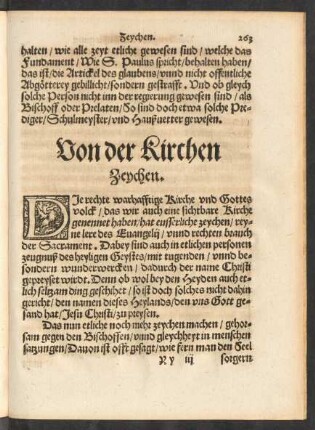 Zeychen. 263
halten / wie alle zeyt etliche gewesen sind / welche das
Fundament / Wie S. Paulus spricht / behalten haben /
das ist / die Artickel des glaubens / vnnd nicht offentliche
Abgötterey gebillicht / sondern gestrafft. Vnd ob gleych
solche Person nicht inn der regierung gewesen sind / als
Bischoff oder Prelaten / So sind doch etwa solche Pre-
diger / Schulmeyster / vnd Haußuetter gewesen.
Von der Kirchen
Zeychen.
DIe rechte warhafftige Kirche vnd Gottes
volck / das wir auch eine sichtbare Kirche
genennet haben / hat eusserliche zeychen / rey-
ne lere des Euangelij / vnnd rechten brauch
der Sacrament. Dabey sind auch in etlichen personen
zeugnuß des heyligen Geystes / mit tugenden / vnnd be-
sondern wunderwercken / dadurch der name Christi
gepreyset wirdt. Denn ob wol bey den Heyden auch et-
lich seltzam ding geschihet / so ist doch solches nicht dahin
gericht / den namen dieses Heylands / den vns Gott ge-
sand hat / Jesu Christi / zu preysen.
Das nun etliche noch mehr zeychen machen / gehor-
sam gegen den Bischoffen / vnnd gleychheyt in menschen
satzungen / Dauon ist offt gesagt / wie fern man den Seel
iij sorgern